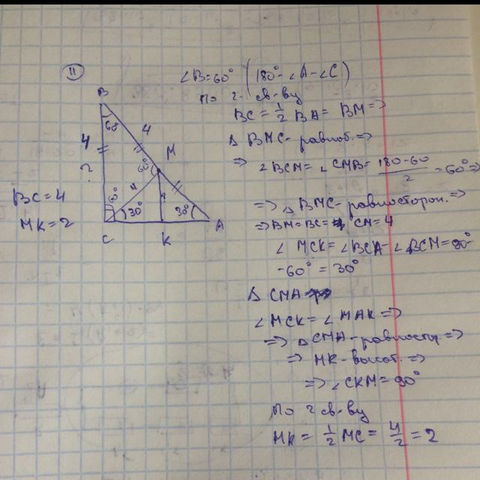 11
B
60°
4
4
?
60°
M
60°
4
30°
30°
C
K
A
BC = 4
MK = 2
∠B = 60° (180° - ∠A - ∠C)
По 2 св-ву
BC = 1/2 BA = BM =>
△ BMC - равноб. =>
=> ∠BCM = ∠CMB = 180-60/2 = 60° =>
=> △ BMC - равносторон. =>
=> BM = BC = CM = 4
∠ MCK = ∠BCA - ∠BCM = 90°
- 60° = 30°
△ CMA
∠MCK = ∠MAK =>
=> △ CMA - =>
=> MK - высот. =>
=> ∠CKM = 90°
По 2 св-ву
MK = 1/2 MC = 4/2 = 2